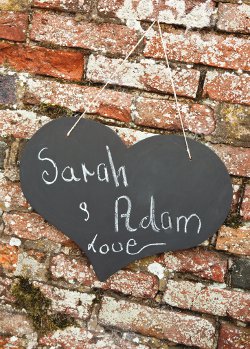 Sarah
& Adam
Love